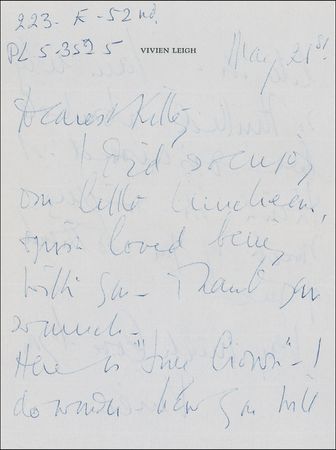 223 - E - 52nd.
PL 5-35 5
VIVIEN LEIGH
May 21st.
Dearest Kitty
I did so enjoy
our little luncheon,
loved being
with you - Thank you
so much -
Here is " Crown" - I
do wonder how you will